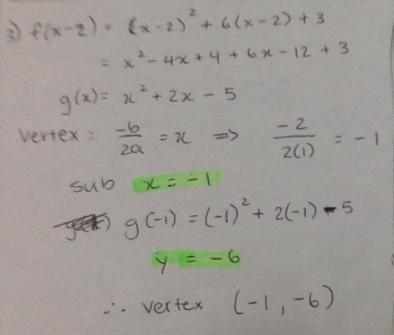 3) f(x-2) = (x-2)² + 6(x-2) + 3
= x² - 4x + 4 + 6x - 12 + 3
g(x) = x² + 2x - 5
vertex: -b/2a = x ⇒ -2/2(1) = -1
sub x = -1
g(-1) = (-1)² + 2(-1) - 5
y = -6
∴ vertex (-1, -6)